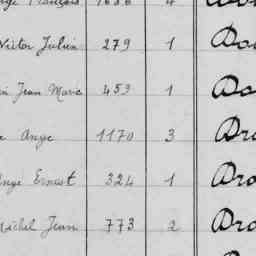 François 1686 4
Victor Julien 279 1 Do
Jean Marie 459 1 Do
Ange 1170 3 Dro
Ange Ernest 324 1 Dro
Michel Jean 773 2 Dro